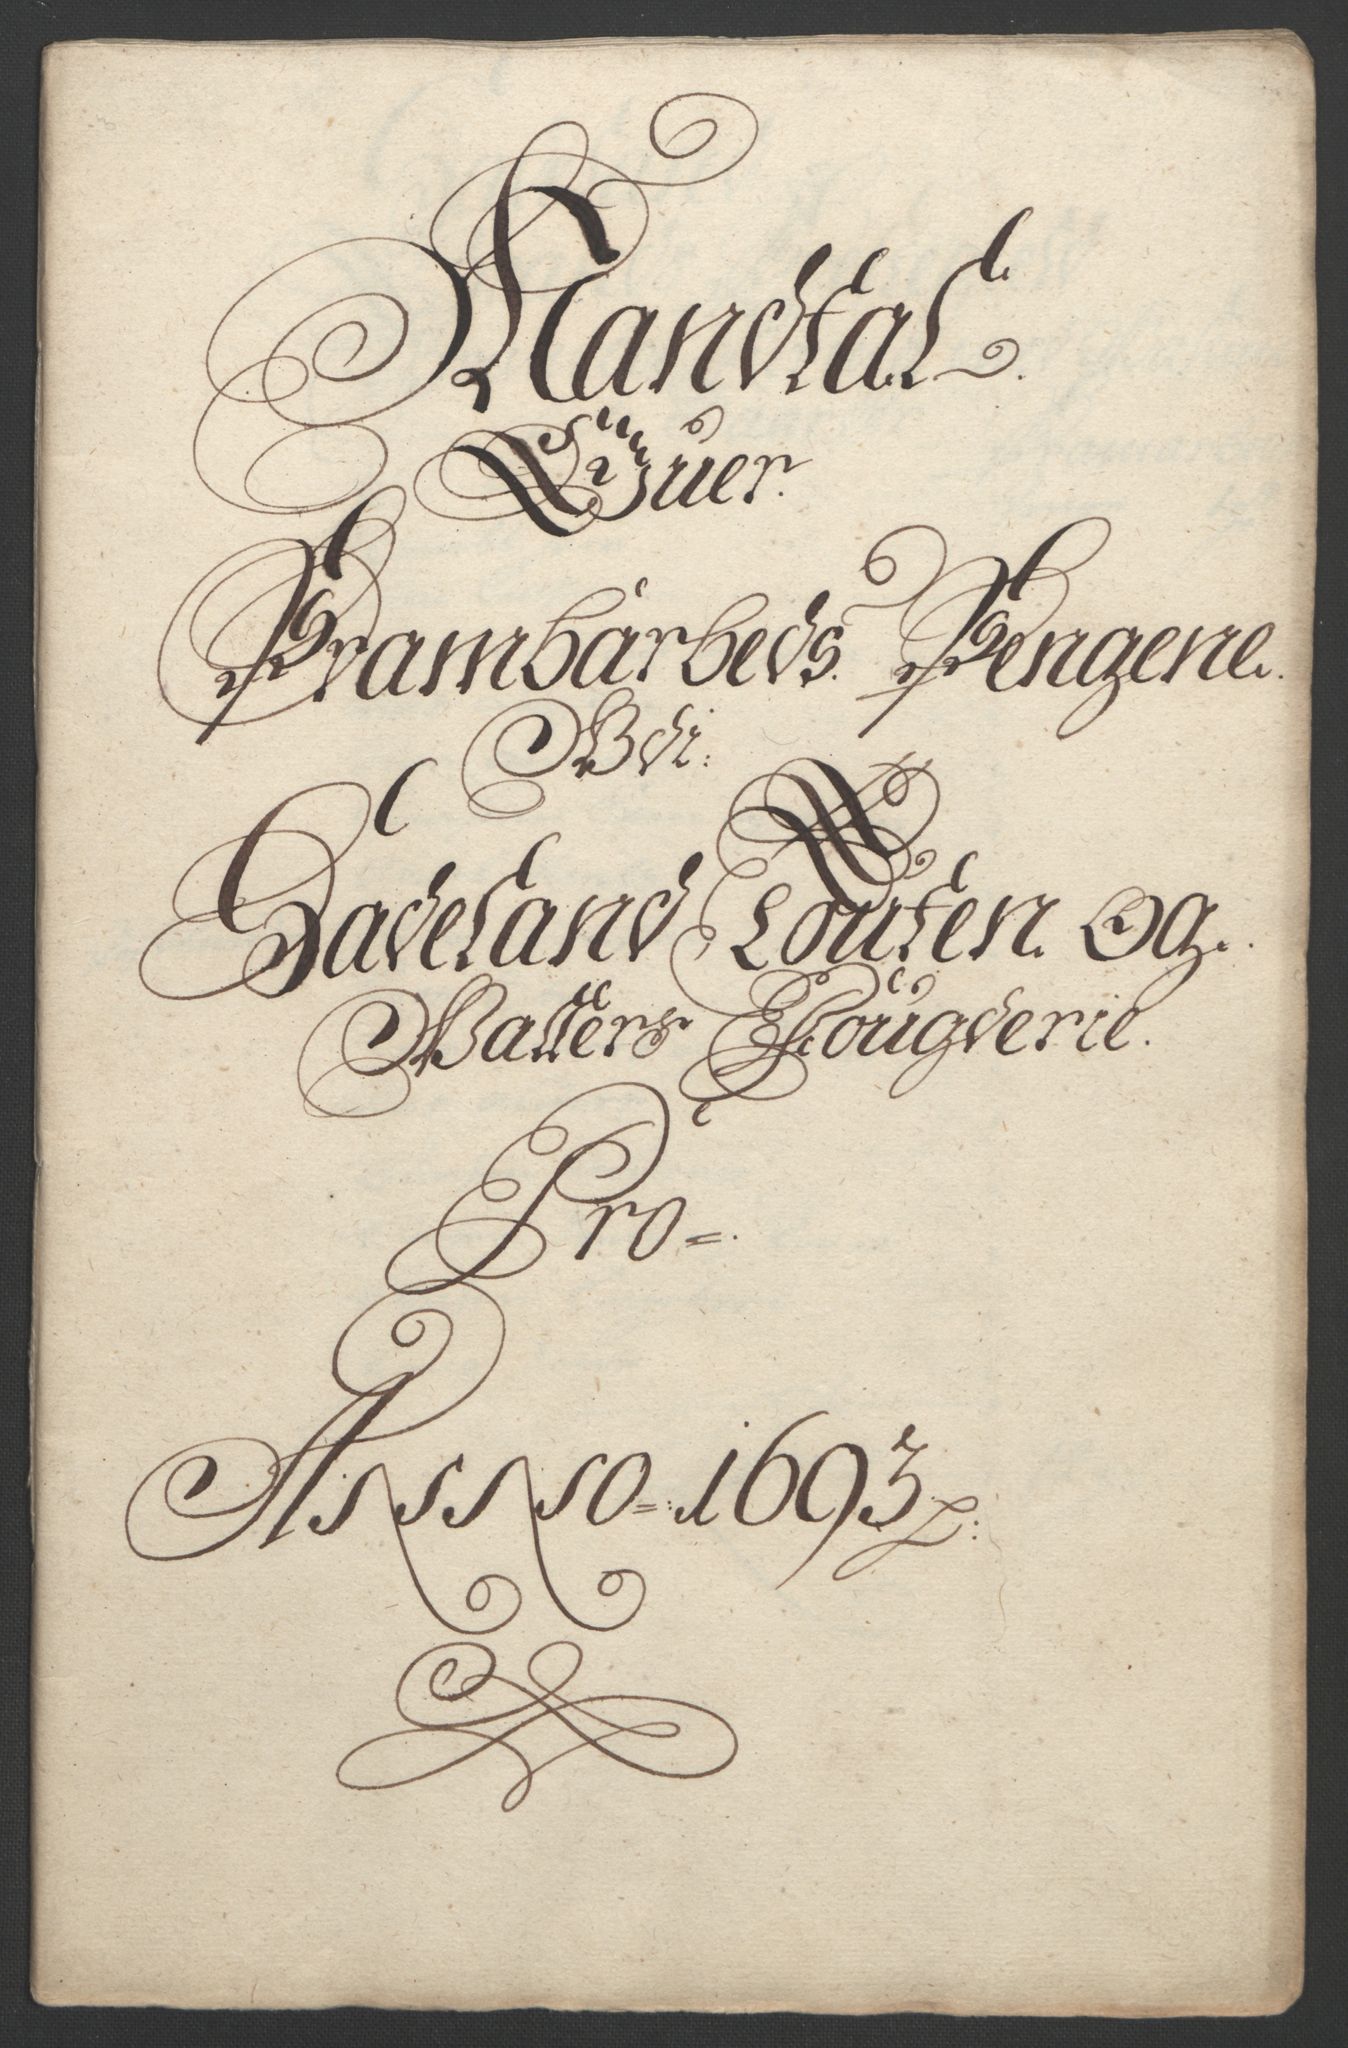 Mandtal
Ofuer
Prambarbeds Pengene.
Vdi:
Hadeland Touten Og.
Valders Fougderie.
Pro=.
Anno=: 1693